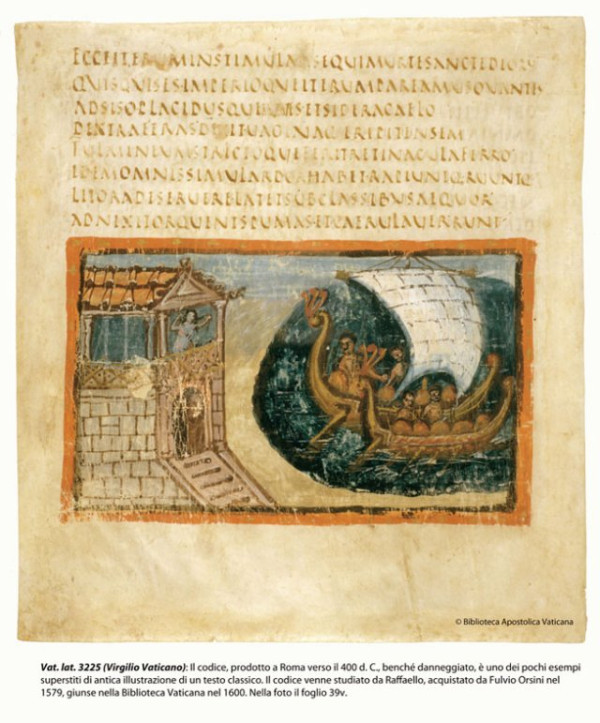 ECCEITERUMINSTIMULATSEQUIMURTESANCTEDEOR
QUISQUISESIMPERIOQUEITERUMPAREAMUSOVANTES
ADSISOPLACIDUSQUEIUVESETSIDERACAELO
DEXTRAFERASDIXITVAGINAQUEERIPITENSEM
FULMINEUMSTRICTOQUEFERITRETINACULAFERRO
IDEMOMNISSIMULARDORHABETRAPIUNTQRUUNTQ
LITORADESERUERELATETSUBCLASSIBUSAEQUOR
ADNIXITORQUENTSPUMASETCAERULAVERRUNT
© Biblioteca Apostolica Vaticana
Vat. lat. 3225 (Virgilio Vaticano): Il codice, prodotto a Roma verso il 400 d. C., benché danneggiato, è uno dei pochi esempi
superstiti di antica illustrazione di un testo classico. Il codice venne studiato da Raffaello, acquistato da Fulvio Orsini nel
1579, giunse nella Biblioteca Vaticana nel 1600. Nella foto il foglio 39v.